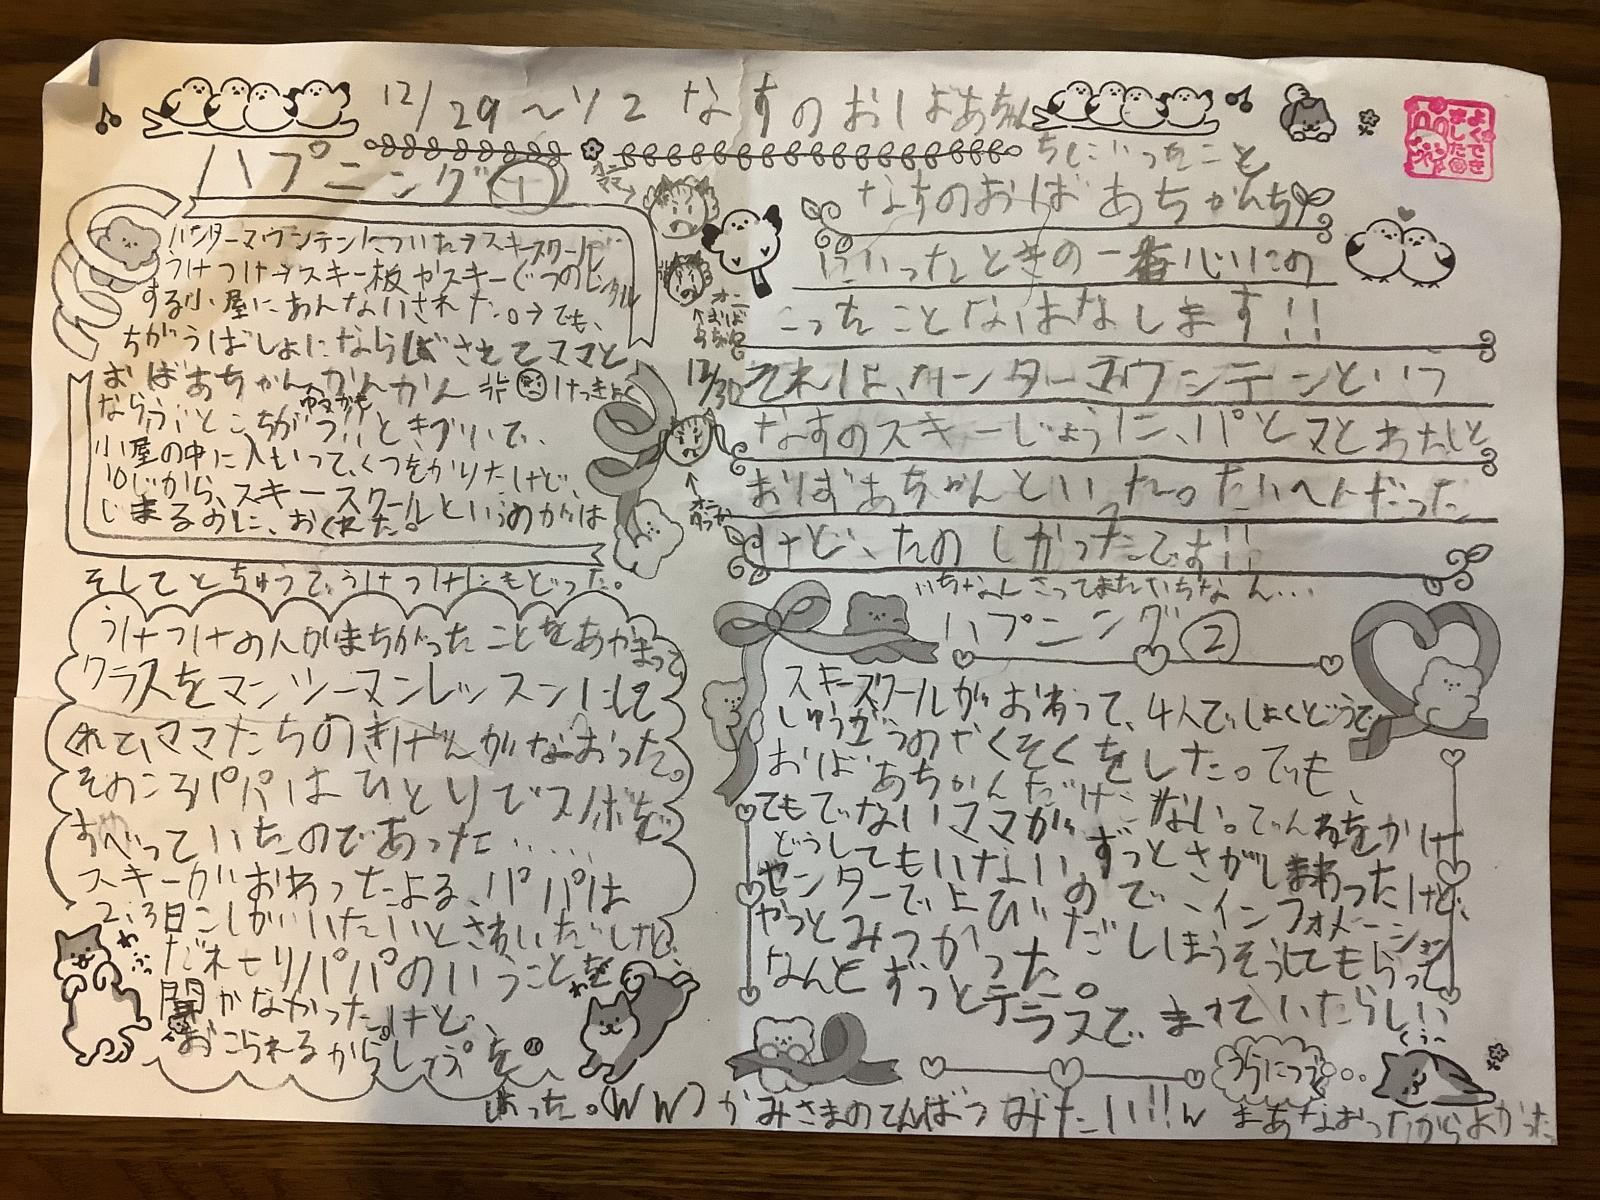 12/29〜1/2 なすのおばあちゃん
ちにいったこと
よくできました
なすのおばあちゃんち
にいったときの一番心にの
こったことなはなします!!
それは、ハンターマウンテンといっ
なすのスキーじょうに、パとママとわたしと
おばあちゃんといった。たいへんだった
けど、たのしかったです!!
ハプニング①
ハンターマウンテンについた→スキースクール
うけつけ→スキー板やスキーぐつのレンタル
する小屋にあんないされた。→でも、
ちがうばしょにならばさせてママと
おばあちゃんかんかん けっきょく
ならうところちがう!!ときづいて、
小屋の中に入もいって、くつをかりたけど、
10じから、スキースクールというのがは
じまるのに、おくれた。
オニママ→
オニおばあちゃん
12/30
そしてとちゅうで、うけつけにもどった。
うけつけの人がまちがったことをあやまって、
クラスをマンツーマンレッスンにして
くれて、ママたちのきげんがなおった。
そのころパパはひとりでスノボを
すべっていたのであった.....
スキーがおわったよる、パパは
2、3日こしがいたいとさわいだけど、
だれーりパパのいうことを
聞かなかった。けど、
おこられるからしっぷを
はった。(WW)かみさまのてんばつみたい!!w まあなおったからよかった
いちなんさってまたいちなん...
ハプニング②
スキースクールがおわって、4人でしょくどうで
しゅうごうのやくそくをした。でも、
おばあちゃんだけこない。でんわをかけ
てもでないママが、ずっとさがしまわったけど、
どうしてもいないので、インフォメーション
センターでよびだしほうそうしてもらって
やっとみつかった。
なんとずっとテラスでまっていたらしい
うらにつづく